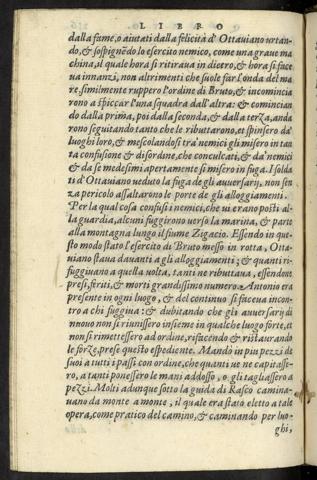 LIBRO
dalla fame, o aiutati dalla felicità d'Ottaviano urtan-
do, & sospignẽdo lo esercito nemico, come una grave ma
china, il quale hora si ritirava in dietro, & hora si face
va innanzi, non altrimenti che suole far l'onda del ma
re, similmente ruppero l'ordine di Bruto, & incomincia
rono a spiccar l'una squadra dall'altra: & comincian
do dalla prima, poi dalla seconda, & dalla terza, anda
rono seguitando tanto che le ributtarono, et spinsero da'
luoghi loro, & mescolandosi tra nemici gli misero in tan
ta confusione & disordine, che conculcati, & da' nemici
& da se medesimi apertamente si misero in fuga. I solda
ti d'Ottaviano veduto la fuga degli avversarij, non sen
za pericolo assaltarono le porte de gli alloggiamenti.
Per la qual cosa confusi i nemici, che vi erano posti al-
la guardia, alcuni fuggirono verso la marina, & parte
alla montagna lungo il fiume Zigacio. Essendo in que
sto modo stato l'esercito di Bruto messo in rotta, Otta
viano stava davanti a gli alloggiamenti; & quanti ri-
fuggivano a quella volta, tanti ne ributtava, essendone
presi, feriti, & morti grandissimo numero. Antonio era
presente in ogni luogo, & del continuo si faceva incon-
tro a chi fuggiva: & dubitando che gli avversarij di
nuovo non si riunissero insieme in qualche luogo forte, et
non si rimettessero ad ordine, rifacendo & ristaurando
le forze, prese questo espediente. Mandò in piu pezzi de'
suoi a tutti i passi con ordine, che quanti ve ne capitasse-
ro, a tanti ponessero le mani addosso, o gli tagliassero a
pezzi. Molti adunque sotto la guida di Rasco camina-
vano da monte a monte, il quale era stato eletto a tale
opera, come pratico del camino, & caminando per luo-
ghi,